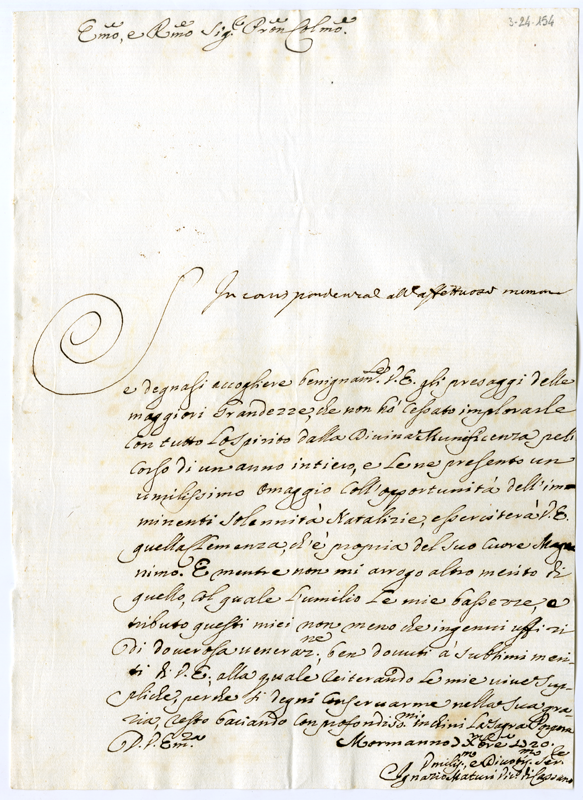 3-24-154
Emo, e Rmo Sig.re Pron Colmo.
In corrispondenza all'affettuosa memor
Se degnasi accogliere benignamte. V.E. gli presaggi delle
maggiori Grandezze, che non hò cessato implorarle
con tutto lo spirito dalla Divina Munificenza pel
corso di un anno intiero, e le ne presento un
umilissimo omaggio coll'opportunità dell'im=
minenti Solennità Natalizie, eserciterà V.E.
quella Clemenza, ch'è propria del suo Cuore Magna
nimo. E mentre non mi arrogo altro merito di
quello, col quale l'umilio le mie bassezze, e
tributo questi miei non meno che ingenui uffizi
di doverosa veneraz.ne, ben dovuti à sublimi meri
ti di V.E., alla quale reiterando le mie vive Sup
pliche, perche si degni conservarme nella Sua gra
zia, resto baciando con profondiss.mi inchini la Sagra Porpora
D. V. Em.za
Mormanno Xbre 1720.
Umiliss.mo e Divotiss.mo Ser.
Ignazio Maturi di Cassano